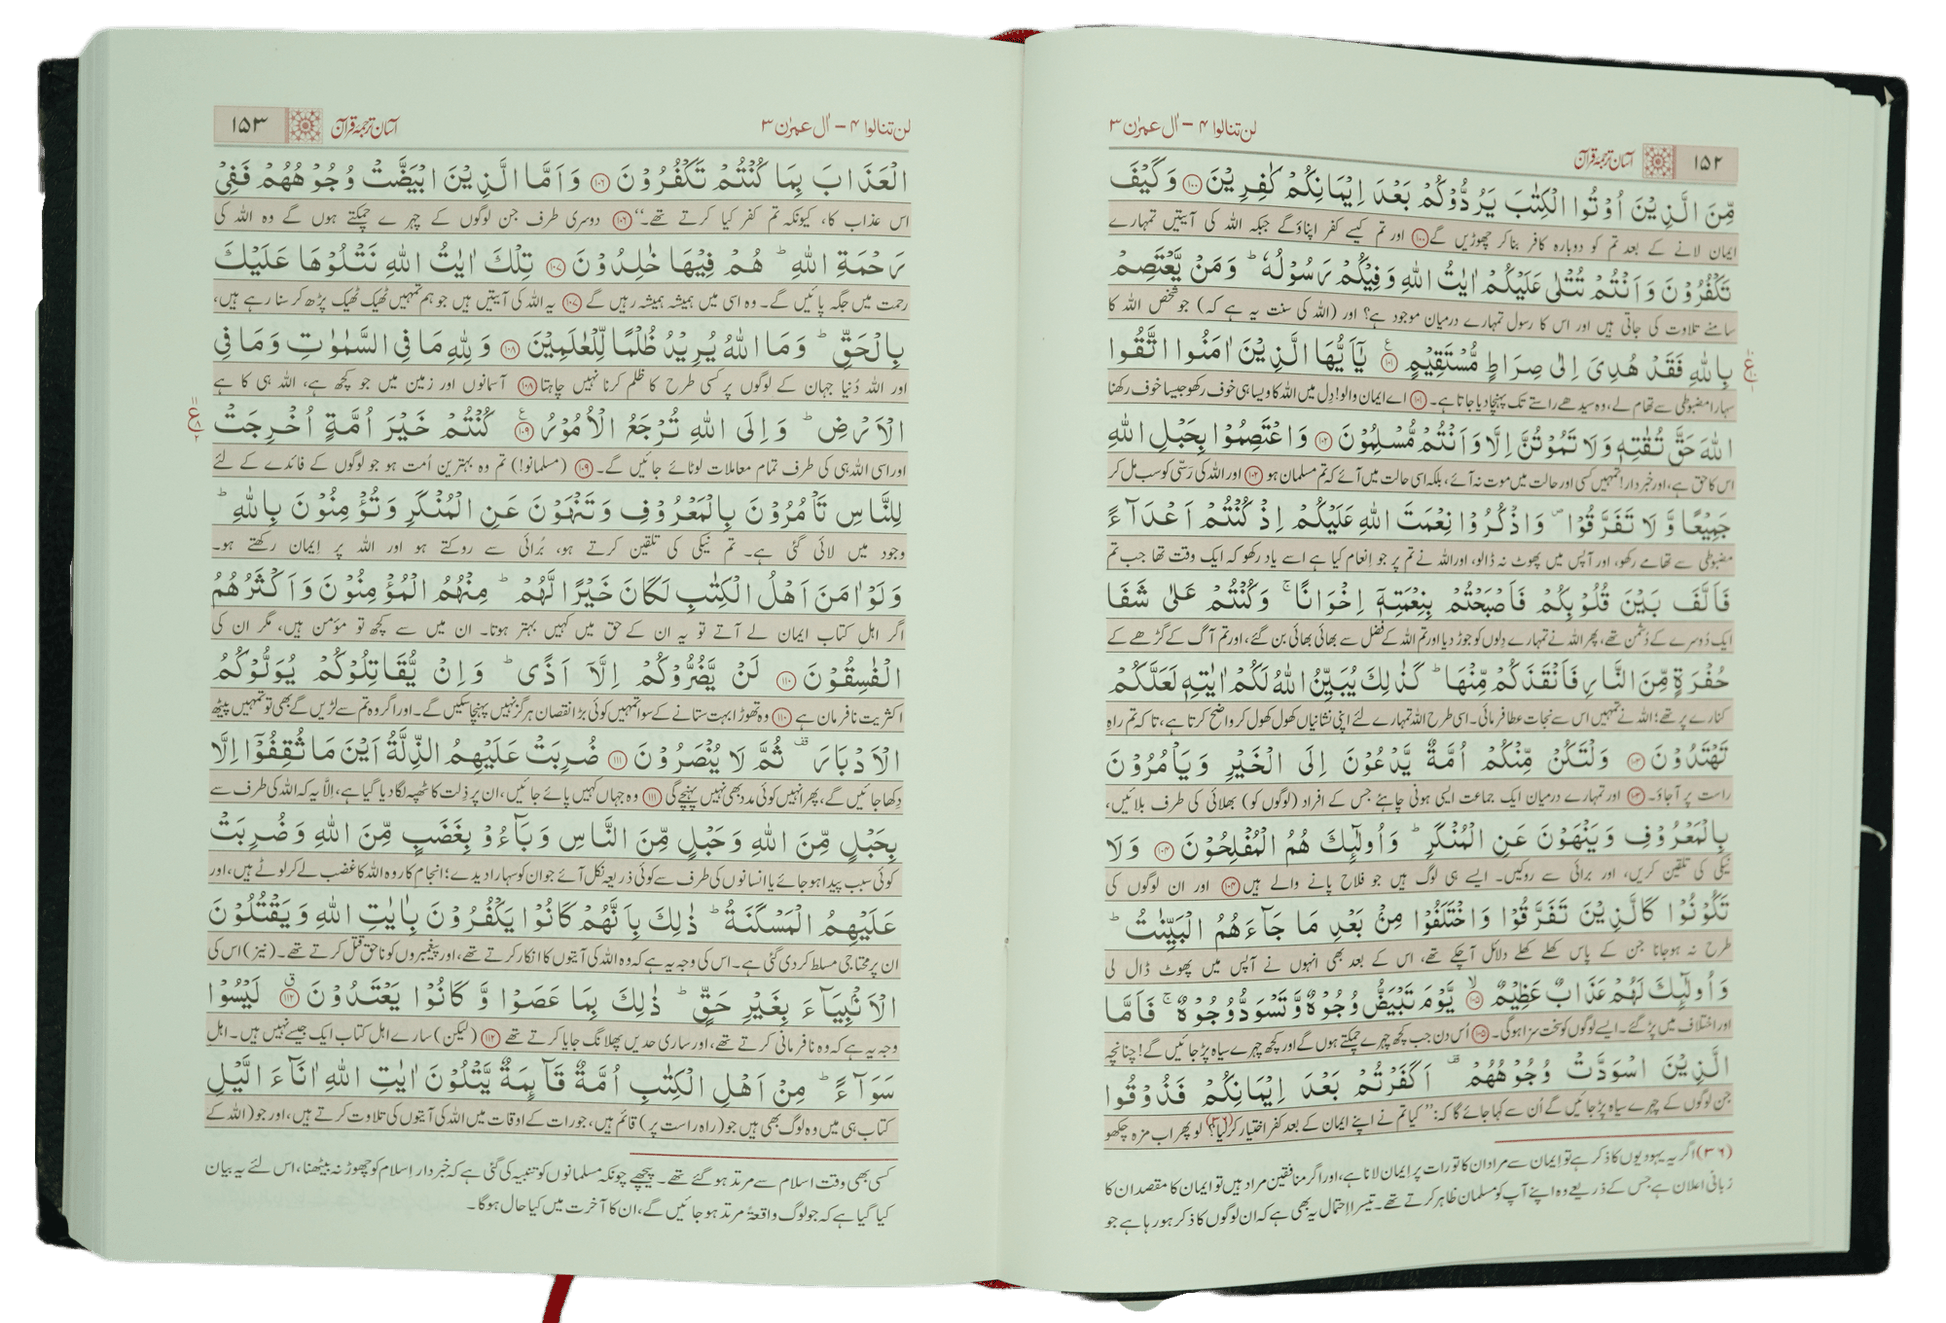 ۱۵۲ آسان ترجمۂ قرآن لن تنالوا ۴ – اٰل عمرٰن ۳
مِّنَ الَّذِيْنَ اُوْتُوا الْكِتٰبَ يَرُدُّوْكُمْ بَعْدَ اِيْمَانِكُمْ كٰفِرِيْنَ ۝۱۰۰ وَكَيْفَ
ایمان لانے کے بعد تم کو دوبارہ کافر بنا کر چھوڑیں گے ﴿۱۰۰﴾ اور تم کیسے کفر اپناؤ گے جبکہ اللہ کی آیتیں تمہارے
تَكْفُرُوْنَ وَاَنْتُمْ تُتْلٰى عَلَيْكُمْ اٰيٰتُ اللّٰهِ وَفِيْكُمْ رَسُوْلُهٗ ؕ وَمَنْ يَّعْتَصِمْ
سامنے تلاوت کی جاتی ہیں اور اس کا رسول تمہارے درمیان موجود ہے؟ اور (اللہ کی سنت یہ ہے کہ) جو شخص اللہ کا
بِاللّٰهِ فَقَدْ هُدِىَ اِلٰى صِرَاطٍ مُّسْتَقِيْمٍ ۝۱۰۱ يٰۤاَيُّهَا الَّذِيْنَ اٰمَنُوا اتَّقُوا
سہارا مضبوطی سے تھام لے، وہ سیدھے راستے تک پہنچا دیا جاتا ہے۔ ﴿۱۰۱﴾ اے ایمان والو! دِل میں اللہ کا ویسا ہی خوف رکھو جیسا خوف رکھنا
اللّٰهَ حَقَّ تُقٰتِهٖ وَلَا تَمُوْتُنَّ اِلَّا وَاَنْتُمْ مُّسْلِمُوْنَ ۝۱۰۲ وَاعْتَصِمُوْا بِحَبْلِ اللّٰهِ
اس کا حق ہے، اور خبردار! تمہیں کسی اور حالت میں موت نہ آئے، بلکہ اسی حالت میں آئے کہ تم مسلمان ہو ﴿۱۰۲﴾ اور اللہ کی رَسّی کو سب مل کر
جَمِيْعًا وَّلَا تَفَرَّقُوْا ۪ وَاذْكُرُوْا نِعْمَتَ اللّٰهِ عَلَيْكُمْ اِذْ كُنْتُمْ اَعْدَآءً
مضبوطی سے تھامے رکھو، اور آپس میں پھوٹ نہ ڈالو، اور اللہ نے تم پر جو اِنعام کیا ہے اسے یاد رکھو کہ ایک وقت تھا جب تم
فَاَلَّفَ بَيْنَ قُلُوْبِكُمْ فَاَصْبَحْتُمْ بِنِعْمَتِهٖۤ اِخْوَانًا ۚ وَكُنْتُمْ عَلٰى شَفَا
ایک دُوسرے کے دُشمن تھے، پھر اللہ نے تمہارے دِلوں کو جوڑ دیا اور تم اللہ کے فضل سے بھائی بھائی بن گئے، اور تم آگ کے گڑھے کے
حُفْرَةٍ مِّنَ النَّارِ فَاَنْقَذَكُمْ مِّنْهَا ؕ كَذٰلِكَ يُبَيِّنُ اللّٰهُ لَكُمْ اٰيٰتِهٖ لَعَلَّكُمْ
کنارے پر تھے؛ اللہ نے تمہیں اس سے نجات عطا فرمائی۔ اسی طرح اللہ تمہارے لئے اپنی نشانیاں کھول کھول کر واضح کرتا ہے، تاکہ تم راہِ
تَهْتَدُوْنَ ۝۱۰۳ وَلْتَكُنْ مِّنْكُمْ اُمَّةٌ يَّدْعُوْنَ اِلَى الْخَيْرِ وَيَاْمُرُوْنَ
راست پر آجاؤ۔ ﴿۱۰۳﴾ اور تمہارے درمیان ایک جماعت ایسی ہونی چاہئے جس کے افراد (لوگوں کو) بھلائی کی طرف بلائیں،
بِالْمَعْرُوْفِ وَيَنْهَوْنَ عَنِ الْمُنْكَرِ ؕ وَاُولٰٓئِكَ هُمُ الْمُفْلِحُوْنَ ۝۱۰۴ وَلَا
نیکی کی تلقین کریں، اور برائی سے روکیں۔ ایسے ہی لوگ ہیں جو فلاح پانے والے ہیں ﴿۱۰۴﴾ اور ان لوگوں کی
تَكُوْنُوْا كَالَّذِيْنَ تَفَرَّقُوْا وَاخْتَلَفُوْا مِنْۢ بَعْدِ مَا جَآءَهُمُ الْبَيِّنٰتُ ؕ
طرح نہ ہوجانا جن کے پاس کھلے کھلے دلائل آچکے تھے، اس کے بعد بھی انہوں نے آپس میں پھوٹ ڈال لی
وَاُولٰٓئِكَ لَهُمْ عَذَابٌ عَظِيْمٌ ۝۱۰۵ يَّوْمَ تَبْيَضُّ وُجُوْهٌ وَّتَسْوَدُّ وُجُوْهٌ ۚ فَاَمَّا
اور اختلاف میں پڑگئے۔ ایسے لوگوں کو سخت سزا ہوگی۔ ﴿۱۰۵﴾ اُس دن جب کچھ چہرے چمکتے ہوں گے اور کچھ چہرے سیاہ پڑ جائیں گے! چنانچہ
الَّذِيْنَ اسْوَدَّتْ وُجُوْهُهُمْ ۫ اَكَفَرْتُمْ بَعْدَ اِيْمَانِكُمْ فَذُوْقُوا
جن لوگوں کے چہرے سیاہ پڑ جائیں گے اُن سے کہا جائے گا کہ: ”کیا تم نے اپنے ایمان کے بعد کفر اختیار کرلیا؟(۳۶) لو پھر اب مزہ چکھو
(۳۶) اگر یہ یہودیوں کا ذکر ہے تو ایمان سے مراد ان کا تورات پر ایمان لانا ہے، اور اگر منافقین مراد ہیں تو ایمان کا مقصد ان کا
زبانی اعلان ہے جس کے ذریعے وہ اپنے آپ کو مسلمان ظاہر کرتے تھے۔ تیسرا احتمال یہ بھی ہے کہ ان لوگوں کا ذکر ہو رہا ہے جو
لن تنالوا ۴ – اٰل عمرٰن ۳ آسان ترجمۂ قرآن ۱۵۳
الْعَذَابَ بِمَا كُنْتُمْ تَكْفُرُوْنَ ۝۱۰۶ وَاَمَّا الَّذِيْنَ ابْيَضَّتْ وُجُوْهُهُمْ فَفِيْ
اس عذاب کا، کیونکہ تم کفر کیا کرتے تھے۔“ ﴿۱۰۶﴾ دوسری طرف جن لوگوں کے چہرے چمکتے ہوں گے وہ اللہ کی
رَحْمَةِ اللّٰهِ ؕ هُمْ فِيْهَا خٰلِدُوْنَ ۝۱۰۷ تِلْكَ اٰيٰتُ اللّٰهِ نَتْلُوْهَا عَلَيْكَ
رحمت میں جگہ پائیں گے۔ وہ اسی میں ہمیشہ ہمیشہ رہیں گے ﴿۱۰۷﴾ یہ اللہ کی آیتیں ہیں جو ہم تمہیں ٹھیک ٹھیک پڑھ کر سنا رہے ہیں،
بِالْحَقِّ ؕ وَمَا اللّٰهُ يُرِيْدُ ظُلْمًا لِّلْعٰلَمِيْنَ ۝۱۰۸ وَلِلّٰهِ مَا فِى السَّمٰوٰتِ وَمَا فِى
اور اللہ دُنیا جہان کے لوگوں پر کسی طرح کا ظلم کرنا نہیں چاہتا ﴿۱۰۸﴾ آسمانوں اور زمین میں جو کچھ ہے، اللہ ہی کا ہے
الْاَرْضِ ؕ وَاِلَى اللّٰهِ تُرْجَعُ الْاُمُوْرُ ۝۱۰۹ كُنْتُمْ خَيْرَ اُمَّةٍ اُخْرِجَتْ
اور اسی اللہ ہی کی طرف تمام معاملات لوٹائے جائیں گے۔ ﴿۱۰۹﴾ (مسلمانو!) تم وہ بہترین اُمت ہو جو لوگوں کے فائدے کے لئے
لِلنَّاسِ تَاْمُرُوْنَ بِالْمَعْرُوْفِ وَتَنْهَوْنَ عَنِ الْمُنْكَرِ وَتُؤْمِنُوْنَ بِاللّٰهِ ؕ
وجود میں لائی گئی ہے۔ تم نیکی کی تلقین کرتے ہو، بُرائی سے روکتے ہو اور اللہ پر اِیمان رکھتے ہو۔
وَلَوْ اٰمَنَ اَهْلُ الْكِتٰبِ لَكَانَ خَيْرًا لَّهُمْ ؕ مِنْهُمُ الْمُؤْمِنُوْنَ وَاَكْثَرُهُمُ
اگر اہلِ کتاب ایمان لے آتے تو یہ ان کے حق میں کہیں بہتر ہوتا۔ ان میں سے کچھ تو مؤمن ہیں، مگر ان کی
الْفٰسِقُوْنَ ۝۱۱۰ لَنْ يَّضُرُّوْكُمْ اِلَّاۤ اَذًى ؕ وَاِنْ يُّقَاتِلُوْكُمْ يُوَلُّوْكُمُ
اکثریت نافرمان ہے ﴿۱۱۰﴾ وہ تھوڑا بہت ستانے کے سوا تمہیں کوئی بڑا نقصان ہرگز نہیں پہنچا سکیں گے۔ اور اگر وہ تم سے لڑیں گے بھی تو تمہیں پیٹھ
الْاَدْبَارَ ۟ ثُمَّ لَا يُنْصَرُوْنَ ۝۱۱۱ ضُرِبَتْ عَلَيْهِمُ الذِّلَّةُ اَيْنَ مَا ثُقِفُوْۤا اِلَّا
دِکھا جائیں گے، پھر انہیں کوئی مدد بھی نہیں پہنچے گی ﴿۱۱۱﴾ وہ جہاں کہیں پائے جائیں، ان پر ذِلت کا ٹھپہ لگا دیا گیا ہے، اِلَّا یہ کہ اللہ کی طرف سے
بِحَبْلٍ مِّنَ اللّٰهِ وَحَبْلٍ مِّنَ النَّاسِ وَبَآءُوْ بِغَضَبٍ مِّنَ اللّٰهِ وَضُرِبَتْ
کوئی سبب پیدا ہوجائے یا انسانوں کی طرف سے کوئی ذریعہ نکل آئے جو ان کو سہارا دیدے؛ انجام کار وہ اللہ کا غضب لے کر لوٹے ہیں، اور
عَلَيْهِمُ الْمَسْكَنَةُ ؕ ذٰلِكَ بِاَنَّهُمْ كَانُوْا يَكْفُرُوْنَ بِاٰيٰتِ اللّٰهِ وَيَقْتُلُوْنَ
ان پر محتاجی مسلط کردی گئی ہے۔ اس کی وجہ یہ ہے کہ وہ اللہ کی آیتوں کا انکار کرتے تھے، اور پیغمبروں کو ناحق قتل کرتے تھے۔ (نیز) اس کی
الْاَنْۢبِيَآءَ بِغَيْرِ حَقٍّ ؕ ذٰلِكَ بِمَا عَصَوْا وَّكَانُوْا يَعْتَدُوْنَ ۝۱۱۲ لَيْسُوْا
وجہ یہ ہے کہ وہ نافرمانی کرتے تھے، اور ساری حدیں پھلانگ جایا کرتے تھے ﴿۱۱۲﴾ (لیکن) سارے اہلِ کتاب ایک جیسے نہیں ہیں۔ اہلِ
سَوَآءً ؕ مِنْ اَهْلِ الْكِتٰبِ اُمَّةٌ قَآئِمَةٌ يَّتْلُوْنَ اٰيٰتِ اللّٰهِ اٰنَآءَ الَّيْلِ
کتاب ہی میں وہ لوگ بھی ہیں جو (راہِ راست پر) قائم ہیں، جو رات کے اوقات میں اللہ کی آیتوں کی تلاوت کرتے ہیں، اور جو (اللہ کے
کسی بھی وقت اسلام سے مرتد ہوگئے تھے۔ پیچھے چونکہ مسلمانوں کو تنبیہ کی گئی ہے کہ خبردار اِسلام کو چھوڑ نہ بیٹھنا، اس لئے یہ بیان
کیا گیا ہے کہ جو لوگ واقعۃً مرتد ہوجائیں گے، ان کا آخرت میں کیا حال ہوگا۔